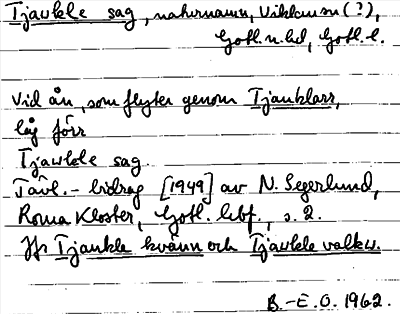 Tjaukle sag, naturnamn, Viklau sn (?),
Gotl. n. hd, Gotl. l.
Vid ån, som flyter genom Tjauklarr,
låg förr
Tjaukle sag.
Tävl.- bidrag [1949] av N. Segerlund,
Roma Kloster, Gotl. , s. 2.
Jfr Tjaukla kvänn och Tjaukle valkv.
B.-E. O. 1962.